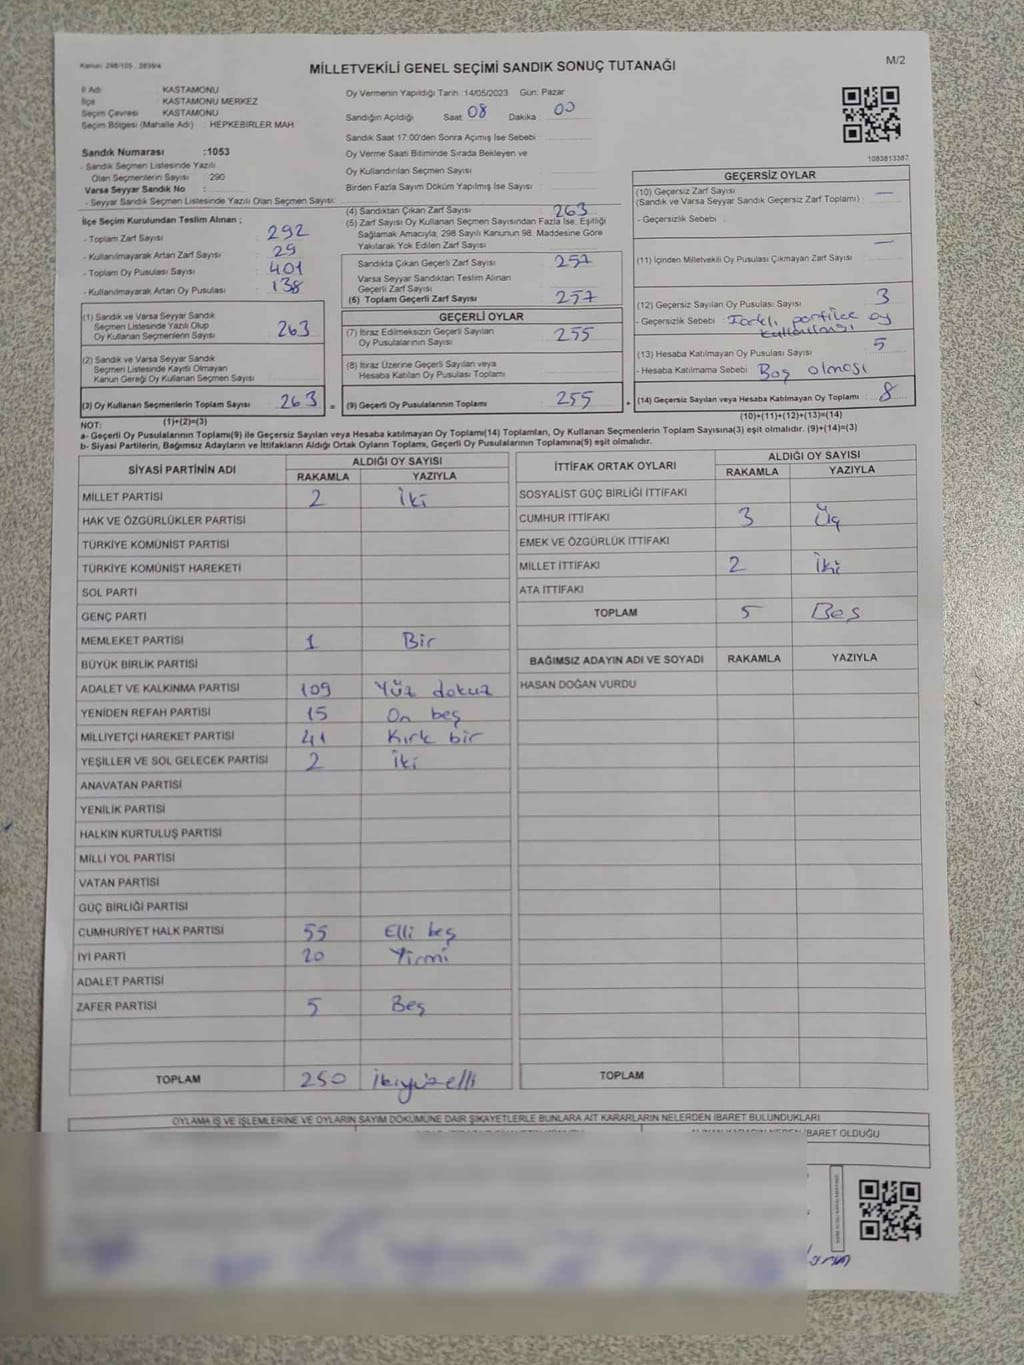 Kanun: 298/105 , 2839/4
M/2
MİLLETVEKİLİ GENEL SEÇİMİ SANDIK SONUÇ TUTANAĞI
İl Adı KASTAMONU
İlçe KASTAMONU MERKEZ
Seçim Çevresi KASTAMONU
Seçim Bölgesi (Mahalle Adı) : HEPKEBİRLER MAH
Sandık Numarası :1053
- Sandık Seçmen Listesinde Yazılı
Olan Seçmenlerin Sayısı : 290
Varsa Seyyar Sandık No :
- Seyyar Sandık Seçmen Listesinde Yazılı Olan Seçmen Sayısı:
Oy Vermenin Yapıldığı Tarih :14/05/2023 Gün: Pazar
Sandığın Açıldığı Saat 08 Dakika 00
Sandık Saat 17:00'den Sonra Açımış İse Sebebi
Oy Verme Saati Bitiminde Sırada Bekleyen ve
Oy Kullandırılan Seçmen Sayısı
Birden Fazla Sayım Döküm Yapılmış İse Sayısı
1083813387
İlçe Seçim Kurulundan Teslim Alınan ;
- Toplam Zarf Sayısı : 292
- Kullanılmayarak Artan Zarf Sayısı : 29
- Toplam Oy Pusulası Sayısı : 401
- Kullanılmayarak Artan Oy Pusulası : 138
(1) Sandık ve Varsa Seyyar Sandık
Seçmen Listesinde Yazılı Olup
Oy Kullanan Seçmenlerin Sayısı 263
(2) Sandık ve Varsa Seyyar Sandık
Seçmen Listesinde Kayıtlı Olmayan
Kanun Gereği Oy Kullanan Seçmen Sayısı
(3) Oy Kullanan Seçmenlerin Toplam Sayısı 263 =
(1)+(2)=(3)
(4) Sandıktan Çıkan Zarf Sayısı 263
(5) Zarf Sayısı Oy Kullanan Seçmen Sayısından Fazla İse, Eşitliği
Sağlamak Amacıyla, 298 Sayılı Kanunun 98. Maddesine Göre
Yakılarak Yok Edilen Zarf Sayısı
Sandıkta Çıkan Geçerli Zarf Sayısı 257
Varsa Seyyar Sandıktan Teslim Alınan
Geçerli Zarf Sayısı
(6) Toplam Geçerli Zarf Sayısı 257
GEÇERLİ OYLAR
(7) İtiraz Edilmeksizin Geçerli Sayılan
Oy Pusulalarının Sayısı 255
(8) İtiraz Üzerine Geçerli Sayılan veya
Hesaba Katılan Oy Pusulası Toplamı
(9) Geçerli Oy Pusulalarının Toplamı 255 +
GEÇERSİZ OYLAR
(10) Geçersiz Zarf Sayısı
(Sandık ve Varsa Seyyar Sandık Geçersiz Zarf Toplamı) : —
- Geçersizlik Sebebi :
(11) İçinden Milletvekili Oy Pusulası Çıkmayan Zarf Sayısı —
(12) Geçersiz Sayılan Oy Pusulası Sayısı 3
- Geçersizlik Sebebi : oy
(13) Hesaba Katılmayan Oy Pusulası Sayısı 5
- Hesaba Katılmama Sebebi Boş olması
(14) Geçersiz Sayılan veya Hesaba Katılmayan Oy Toplamı 8
(10)+(11)+(12)+(13)=(14)
NOT:
a- Geçerli Oy Pusulalarının Toplamı(9) ile Geçersiz Sayılan veya Hesaba katılmayan Oy Toplamı(14) Toplamları, Oy Kullanan Seçmenlerin Toplam Sayısına(3) eşit olmalıdır. (9)+(14)=(3)
b- Siyasi Partilerin, Bağımsız Adayların ve İttifakların Aldığı Ortak Oyların Toplamı, Geçerli Oy Pusulalarının Toplamına(9) eşit olmalıdır.
SİYASİ PARTİNİN ADI ALDIĞI OY SAYISI
RAKAMLA YAZIYLA
MİLLET PARTİSİ 2 İki
HAK VE ÖZGÜRLÜKLER PARTİSİ
TÜRKİYE KOMÜNİST PARTİSİ
TÜRKİYE KOMÜNİST HAREKETİ
SOL PARTİ
GENÇ PARTİ
MEMLEKET PARTİSİ 1 Bir
BÜYÜK BİRLİK PARTİSİ
ADALET VE KALKINMA PARTİSİ 109 Yüz dokuz
YENİDEN REFAH PARTİSİ 15 On beş
MİLLİYETÇİ HAREKET PARTİSİ 41 Kırk bir
YEŞİLLER VE SOL GELECEK PARTİSİ 2 İki
ANAVATAN PARTİSİ
YENİLİK PARTİSİ
HALKIN KURTULUŞ PARTİSİ
MİLLİ YOL PARTİSİ
VATAN PARTİSİ
GÜÇ BİRLİĞİ PARTİSİ
CUMHURİYET HALK PARTİSİ 55 Elli beş
İYİ PARTİ 20 Yirmi
ADALET PARTİSİ
ZAFER PARTİSİ 5 Beş
TOPLAM 250 İkiyüzelli
İTTİFAK ORTAK OYLARI ALDIĞI OY SAYISI
RAKAMLA YAZIYLA
SOSYALİST GÜÇ BİRLİĞİ İTTİFAKI
CUMHUR İTTİFAKI 3 Üç
EMEK VE ÖZGÜRLÜK İTTİFAKI
MİLLET İTTİFAKI 2 İki
ATA İTTİFAKI
TOPLAM 5 Beş
BAĞIMSIZ ADAYIN ADI VE SOYADI RAKAMLA YAZIYLA
HASAN DOĞAN VURDU
TOPLAM
OYLAMA İŞ VE İŞLEMLERİNE VE OYLARIN SAYIM DÖKÜMÜNE DAİR ŞİKAYETLERLE BUNLARA AİT KARARLARIN NELERDEN İBARET BULUNDUKLARI
İBARET OLDUĞU